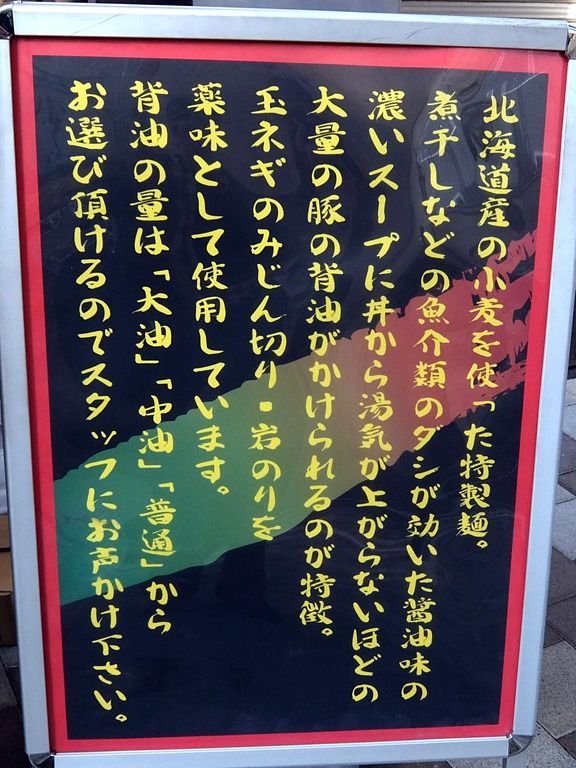 北海道産の小麦を使った特製麺。
煮干しなどの魚介類のダシが効いた醤油味の
濃いスープに丼から湯気が上がらないほどの
大量の豚の背油がかけられるのが特徴。
玉ネギのみじん切り・岩のりを
薬味として使用しています。
背油の量は「大油」「中油」「普通」から
お選び頂けるのでスタッフにお声かけ下さい。